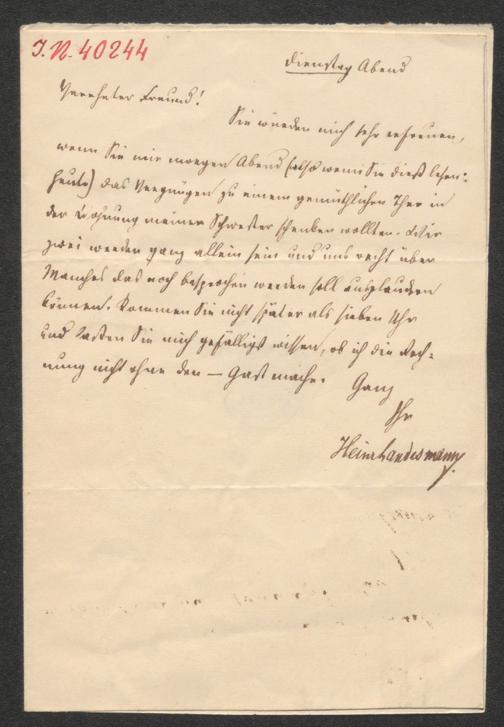 I. N. 40244
Dienstag Abend
Verehrter Freund!
Sie würden mich sehr erfreuen,
wenn Sie mir morgen Abend (also wenn Sie dieß lesen:
heute) das Vergnügen zu einem gemüthlichen Thee in
der Wohnung meiner Schwester schenken wollten. Wir
zwei werden ganz allein sein und uns recht über
Manches das noch besprochen werden soll ausplaudern
können. Kommen Sie nicht später als sieben Uhr
und lassen Sie mich gefälligst wissen, ob ich die Rech-
nung nicht ohne den — Gast mache. Ganz
Ihr
Heinr Landesmann.